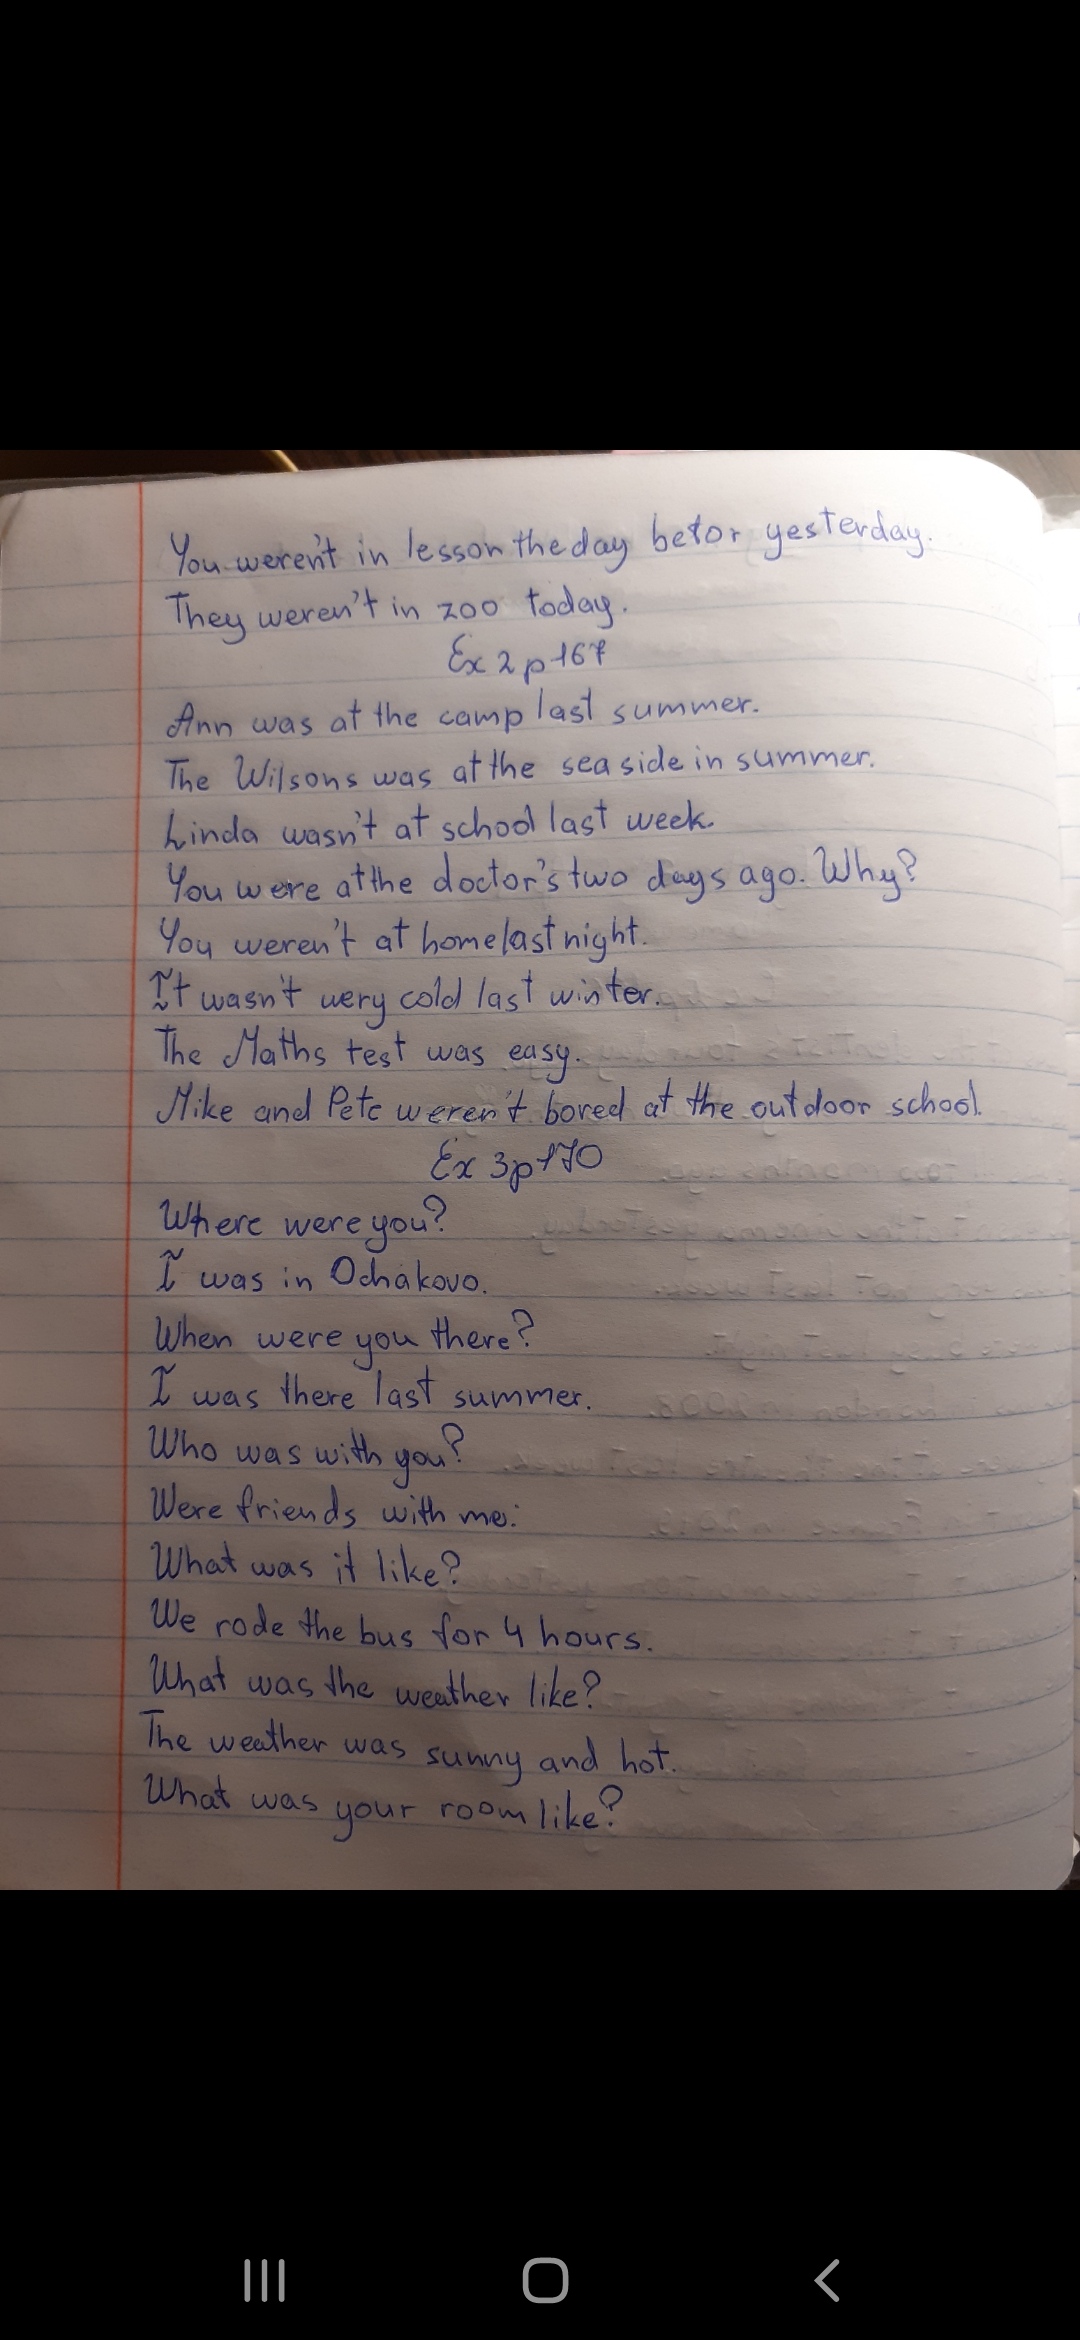 You weren't in lesson the day befor yesterday.
They weren't in zoo today.
Ex 2 p 167
Ann was at the camp last summer.
The Wilsons was at the sea side in summer.
Linda wasn't at school last week.
You were at the doctor's two days ago. Why?
You weren't at home last night.
It wasn't very cold last winter.
The Maths test was easy.
Mike and Pete weren't bored at the outdoor school.
Ex 3 p 170
Where were you?
I was in Ochakovo.
When were you there?
I was there last summer.
Who was with you?
Were friends with me.
What was it like?
We rode the bus for 4 hours.
What was the weather like?
The weather was sunny and hot.
What was your room like?